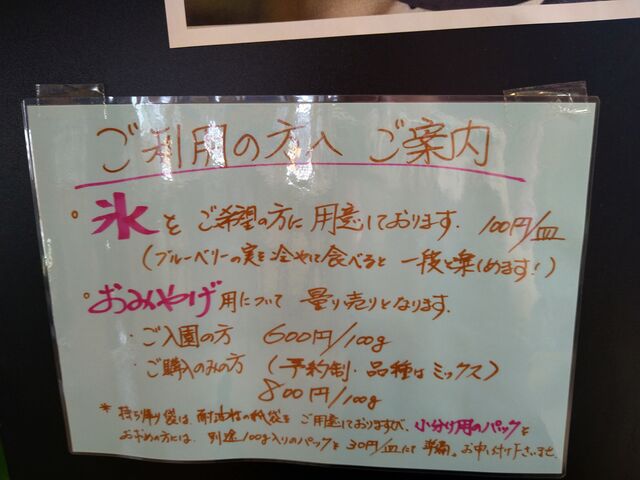 ご利用の方へ ご案内
。氷を ご希望の方に 用意しております. 100円/皿
(ブルーベリーの実を冷やして食べると 一段と楽しめます!)
。おみやげ用について 量り売りとなります.
・ご入園の方 600円/100g
・ご購入のみの方 (予約制・品種はミックス)
800円/100g
* 持ち帰り袋は、耐油性の紙袋を ご用意しておりますが、小分け用のパックを
お求めの方には、別途100g入りのパックを 30円/皿にて準備。お申し付け下さいませ.